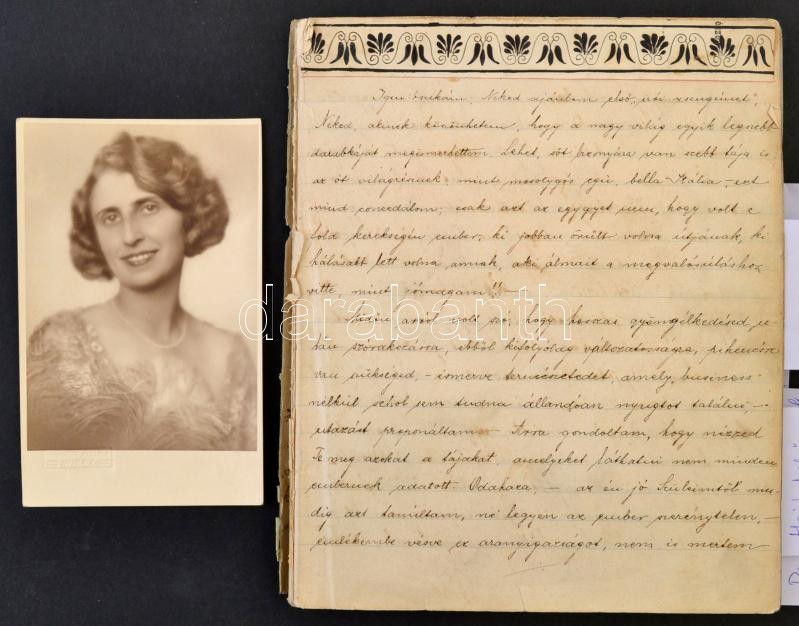 Neked ajánlom első "írói zsengémet",
Neked, akinek köszönhetem, hogy a nagy világ egyik legszebb
darabkáját megismerhettem. Lehet, sőt bizonyára van szebb tája is
az öt világrésznek mint mosolygós egű, bella Itália, ezt
mind concedálom; csak azt az egygyet nem, hogy volt e
föld kerekségén ember, ki jobban örült volna útjának, ki
hálásabb lett volna annak, aki álmait a megvalósuláshoz
vitte, mint jómagam!!-
arról volt szó, hogy hosszas gyöngélkedésed u-
tán szórakozásra, ebből kifolyólag változatosságra, pihenésre
van szükséged, - ismerve természetedet, amely business
nélkül sehol sem tudna állandóan nyugtot találni, -
utazást proponáltam. - Arra gondoltam, hogy nézzed
Te meg azokat a tájakat, amelyeket láthatni nem minden
embernek adatott. Odahaza, - az én jó Szüleimtől min-
dig azt tanúltam, ne legyen az ember szerénytelen, -
emlékembe vésve ez aranyigazságot, nem is mertem
darabanth